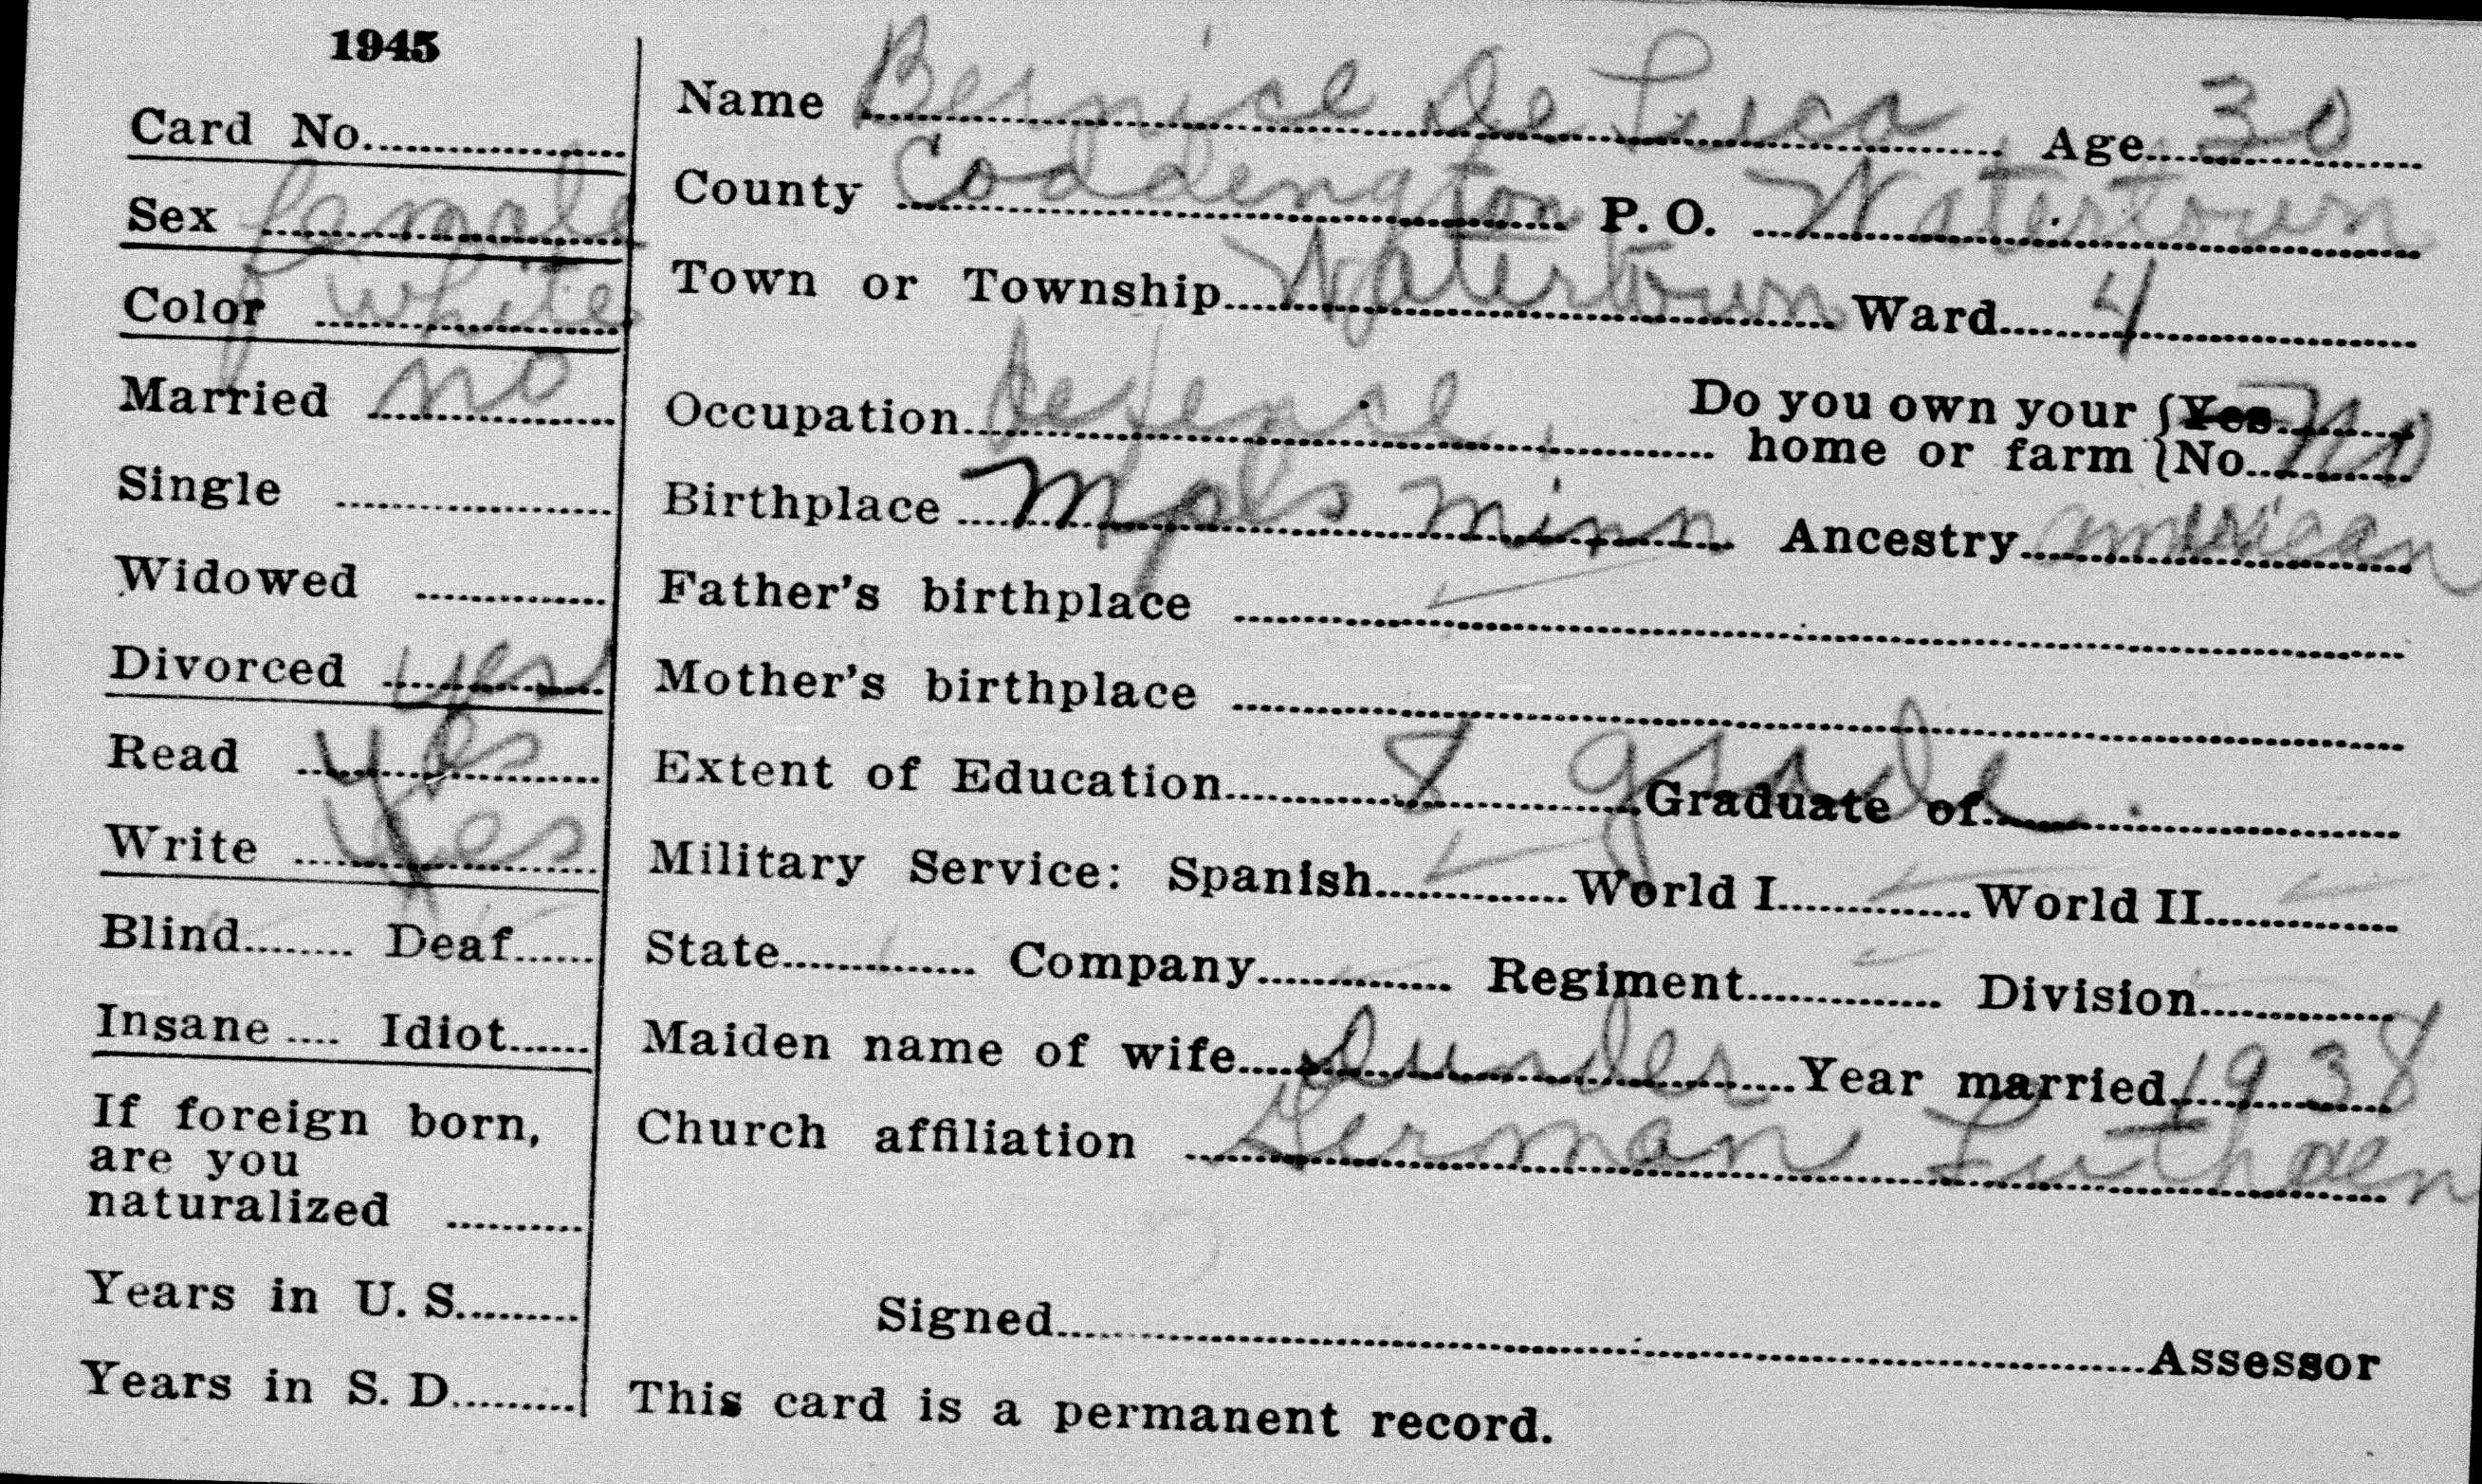 1945
Card No.
Sex female
Color white
Married no
Single
Widowed
Divorced yes
Read yes
Write yes
Blind Deaf
Insane Idiot
If foreign born,
are you
naturalized
Years in U. S.
Years in S. D.
Name Bernice De Luca Age 30
County Coddengton P. O. Watertown
Town or Township Watertown Ward 4
Occupation defence Do you own your { Yes no
home or farm { No
Birthplace Mpls Minn Ancestry american
Father's birthplace
Mother's birthplace
Extent of Education 8 grade Graduate of
Military Service: Spanish World I World II
State Company Regiment Division
Maiden name of wife Dunder Year married 1938
Church affiliation German Luthren
Signed Assessor
This card is a permanent record.